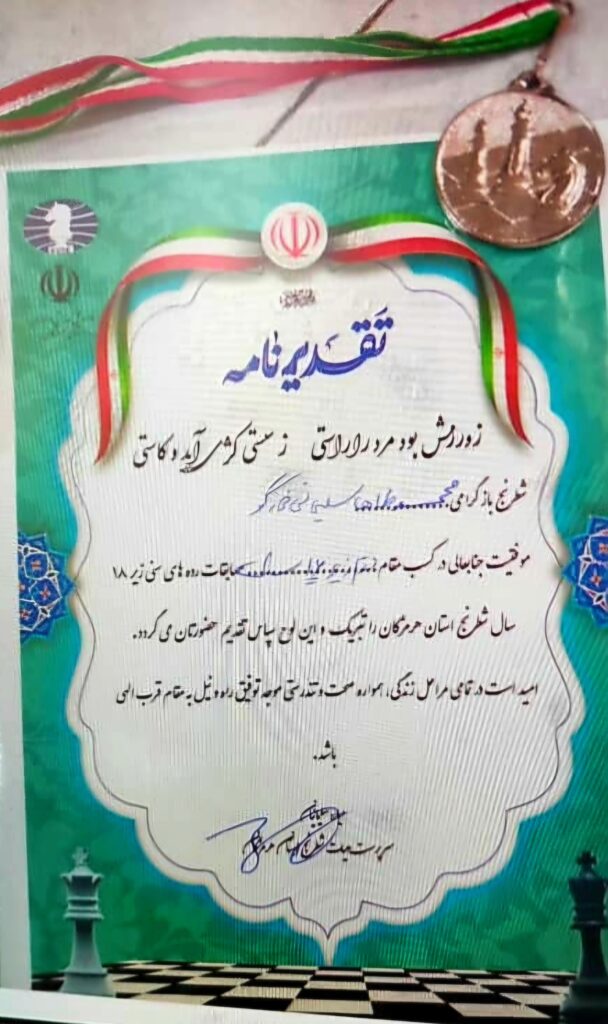 FIDE
تقدیرنامه
زورزش بود مرد را راستی ز سستی کژی آید و کاستی
شطرنج باز گرامی محمد
موفقیت جنابعالی در کسب مقام مسابقات رده های سنی زیر ۱۸
سال شطرنج استان هرمزگان را تبریک و این لوح سپاس تقدیم حضورتان می گردد.
امید است در تمامی مراحل زندگی، همواره صحت و تندرستی موجد توفیق راه و نیل به مقام قرب الهی
باشد.
سرپرست هیات شطرنج استان هرمزگان